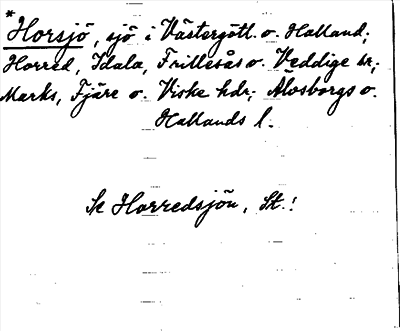 * Horsjö, sjö i Västergötl. o. Halland;
Horred, Idala, Frillesås o. Veddige sr;
Marks, Fjäre o. Viske hdr; Älvsborgs o.
Hallands l.
Se Horredsjön, St.!